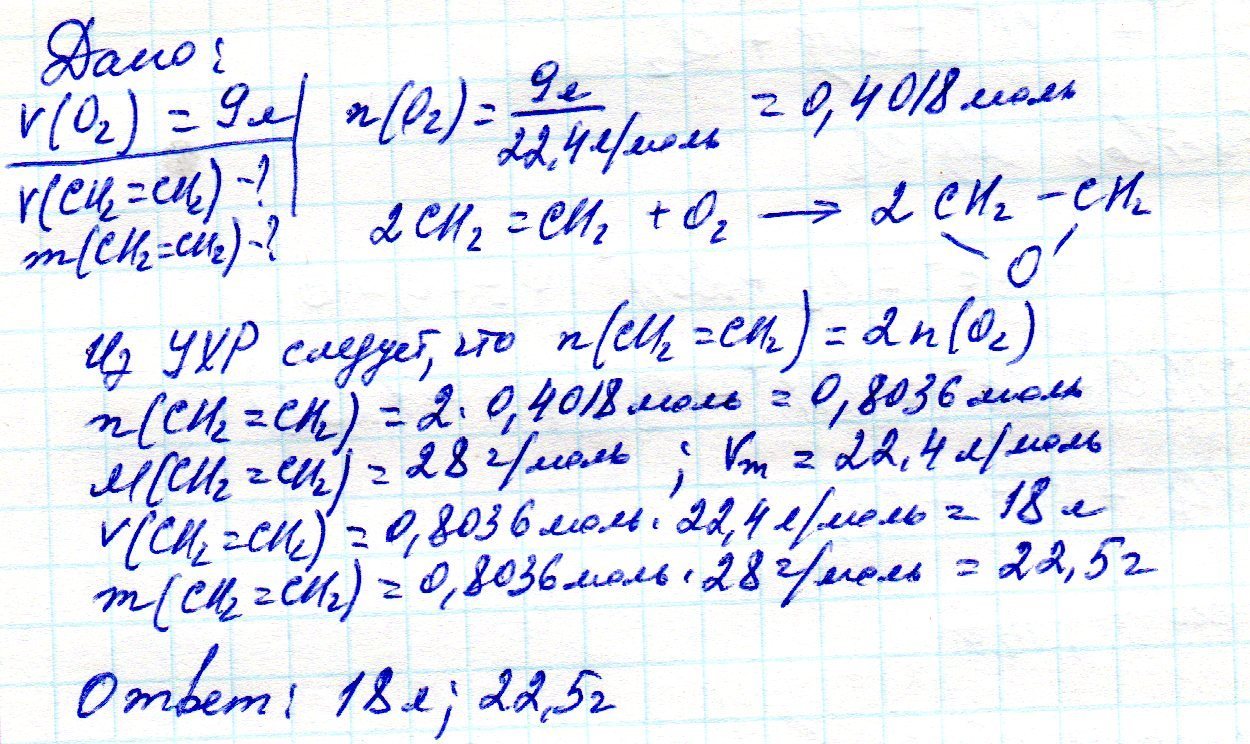 Дано:
V(O₂) = 9л
V(CH₂=CH₂) -?
m(CH₂=CH₂) -?
n(O₂) = 9л / 22,4л/моль = 0,4018 моль
2CH₂=CH₂ + O₂ → 2CH₂-CH₂
O
Из УХР следует, что n(CH₂=CH₂) = 2n(O₂)
n(CH₂=CH₂) = 2·0,4018 моль = 0,8036 моль
M(CH₂=CH₂) = 28 г/моль ; Vm = 22,4 л/моль
V(CH₂=CH₂) = 0,8036 моль · 22,4 л/моль = 18 л
m(CH₂=CH₂) = 0,8036 моль · 28 г/моль = 22,5 г
Ответ: 18л; 22,5г